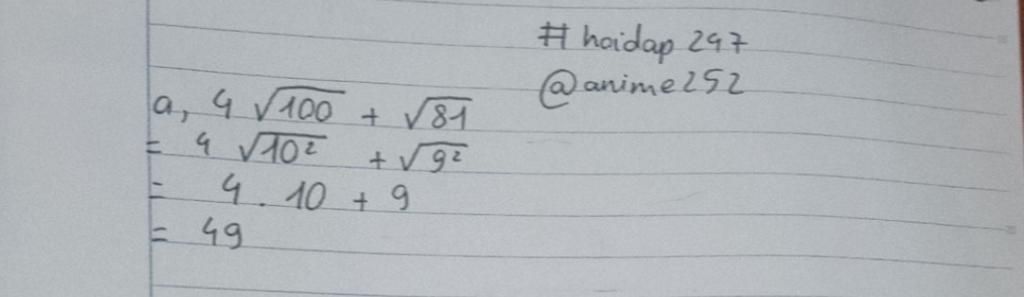 # hoidap 247
@anime252
a, 4 √100 + √81
= 4 √10² + √9²
= 4 . 10 + 9
= 49